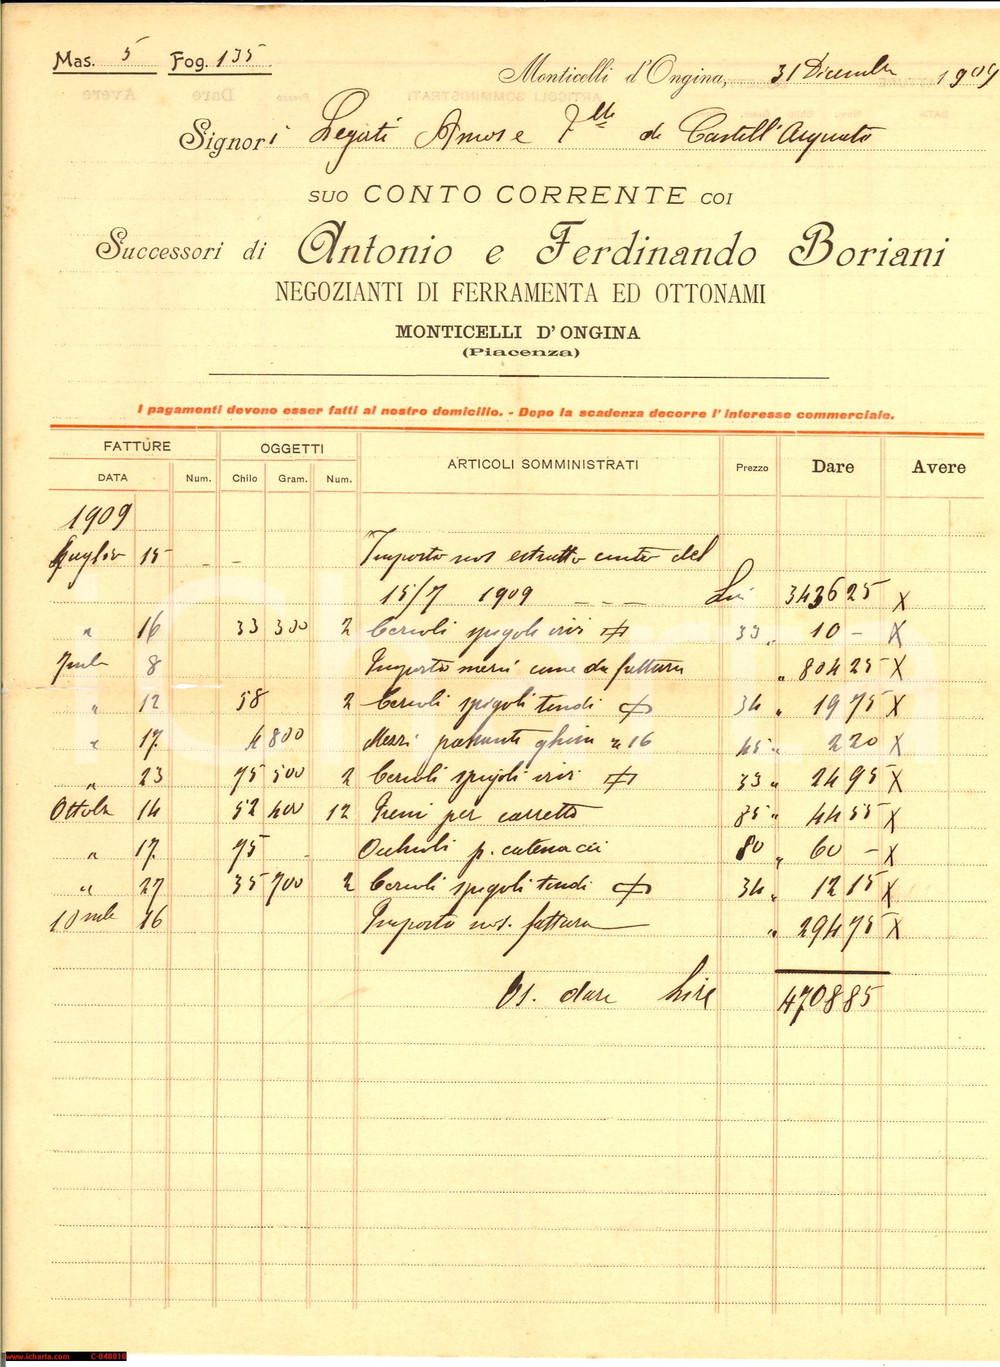 Mas. 5 Fog. 135
Monticelli d'Ongina, 31 Dicembre 1909
Signori Legati Amos e F.lle di Castell'Arquato
SUO CONTO CORRENTE COI
Successori di Antonio e Ferdinando Boriani
NEGOZIANTI DI FERRAMENTA ED OTTONAMI
MONTICELLI D'ONGINA
(Piacenza)
I pagamenti devono esser fatti al nostro domicilio. - Dopo la scadenza decorre l'interesse commerciale.
FATTURE OGGETTI ARTICOLI SOMMINISTRATI Prezzo Dare Avere
DATA Num. Chilo Gram. Num.
1909
Luglio 15 Importo nos estratto conto del
15/7 1909 Lire 3436 25 X
" 16 33 300 2 Cercoli spigoli 33 " 10 - X
7mbre 8 Importo merci come da fattura " 804 25 X
" 12 58 2 Cercoli spigoli tondi 34 " 19 75 X
" 17 4 800 Mozzi passanti ghisa n 16 45 " 2 20 X
" 23 75 500 2 Cercoli spigoli 33 " 24 95 X
Ottobre 14 52 400 12 Freni per carretto 85 " 44 55 X
" 17 75 - Occhioli p. catenacci 80 " 60 - X
" 27 35 700 2 Cercoli spigoli tondi 34 " 12 15 X
10mbre 16 Importo nos. fattura " 294 75 X
Vs. dare Lire 4708 85
www.icharta.com C-040010